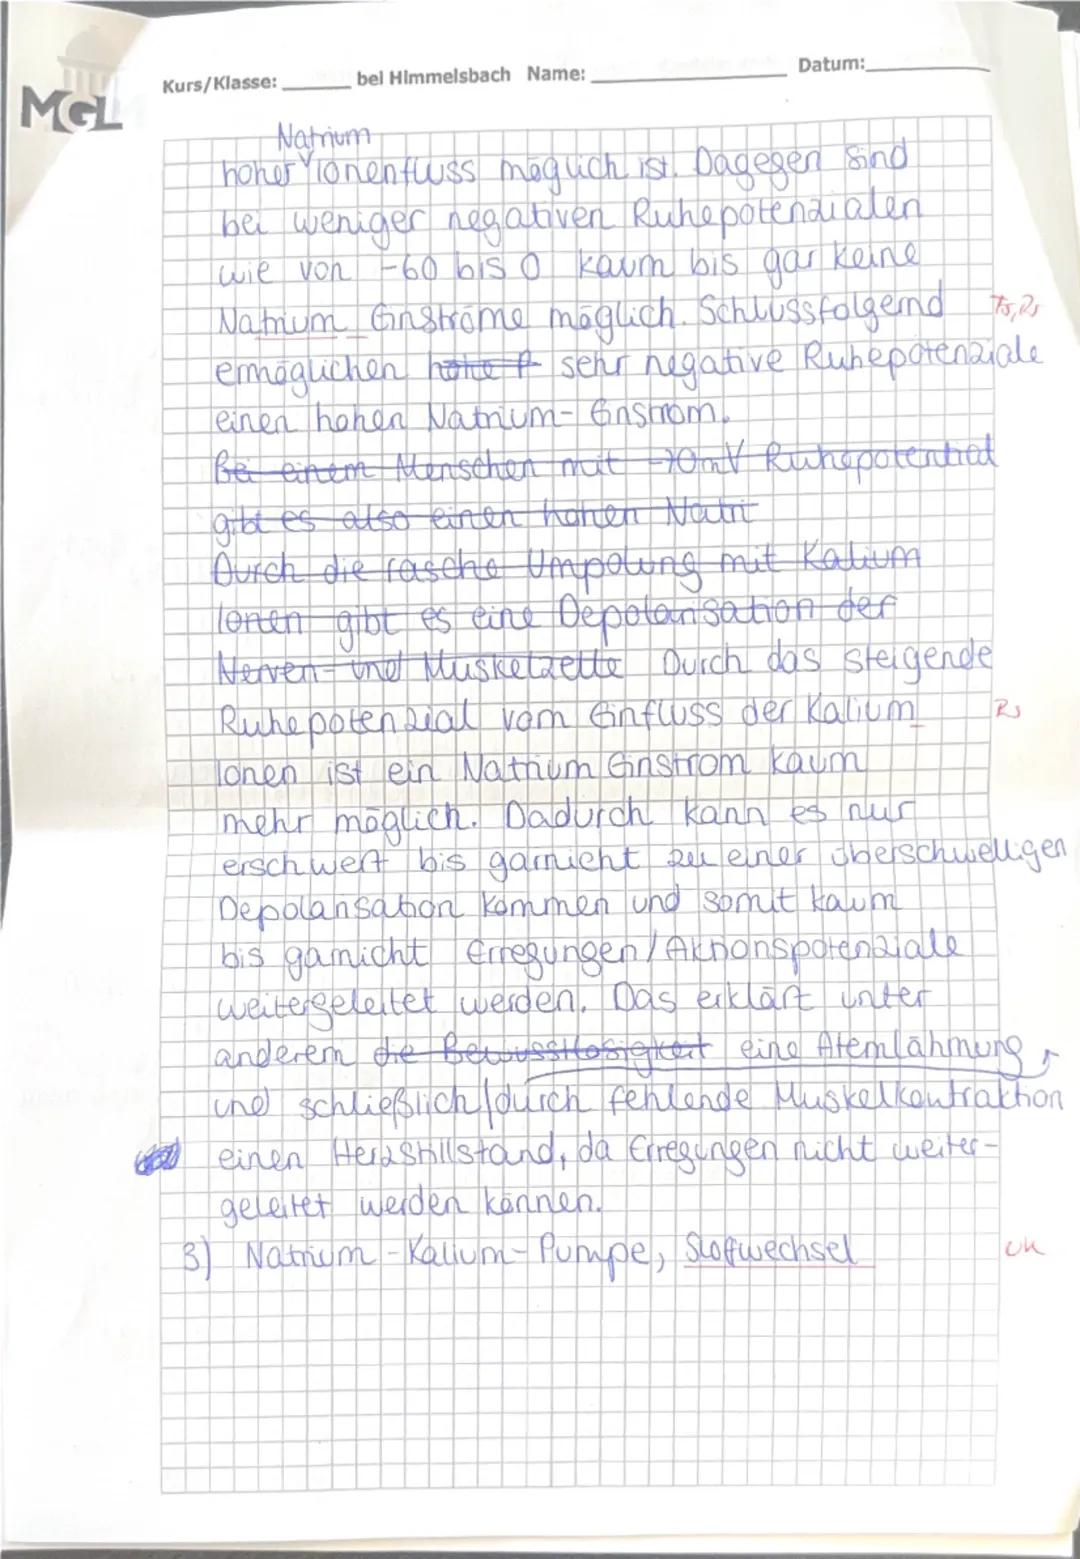 MGL
Kurs/Klasse: ______ bei Himmelsbach Name: ____________ Datum: ________
Natrium
hoher Ionenfluss möglich ist. Dagegen sind
bei weniger negativen Ruhepotenzialen
wie von -60 bis 0 kaum bis gar keine
Natrium Einströme möglich. Schlussfolgernd
ermöglichen hohe P sehr negative Ruhepotenziale
einen hohen Natrium-Einstrom.
Bei einem Menschen mit -70mV Ruhepotential
gibt es also einen hohen Natri
Durch die rasche Umpolung mit Kalium
Ionen gibt es eine Depolarisation der
Nerven- und Muskelzelle Durch das steigende
Ruhepotenzial vom Einfluss der Kalium R
Ionen ist ein Natrium Einstrom kaum
mehr möglich. Dadurch kann es nur
erschwert bis garnicht zu einer überschwelligen
Depolarisation kommen und somit kaum
bis garnicht Erregungen/Aktionspotenziale
weitergeleitet werden. Das erklärt unter
anderem die Bewusstlosigkeit eine Atemlähmung
und schließlich durch fehlende Muskelkontraktion
einen Herzstillstand, da Erregungen nicht weiter-
geleitet werden können.
3) Natrium-Kalium-Pumpe, Stoffwechsel